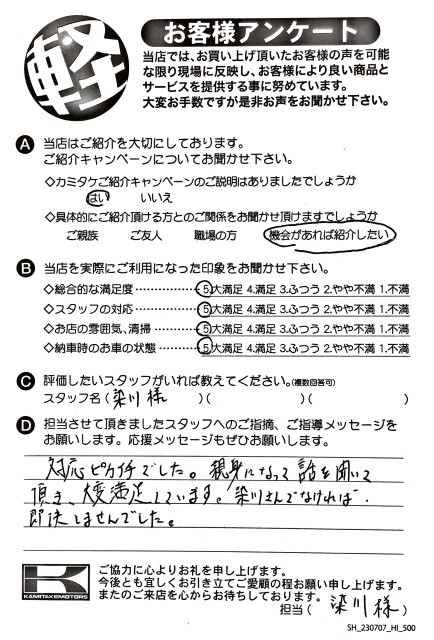 軽
お客様アンケート
当店では、お買い上げ頂いたお客様の声を可能
な限り現場に反映し、お客様により良い商品と
サービスを提供する事に努めています。
大変お手数ですが是非お声をお聞かせ下さい。
A 当店はご紹介を大切にしております。
ご紹介キャンペーンについてお聞かせ下さい。
◇カミタケご紹介キャンペーンのご説明はありましたでしょうか
はい いいえ
◇具体的にご紹介頂ける方とのご関係をお聞かせ頂けますでしょうか
ご親族 ご友人 職場の方 機会があれば紹介したい
B 当店を実際にご利用になった印象をお聞かせ下さい。
◇総合的な満足度……………5.大満足 4.満足 3.ふつう 2.やや不満 1.不満
◇スタッフの対応……………5.大満足 4.満足 3.ふつう 2.やや不満 1.不満
◇お店の雰囲気、清掃………5.大満足 4.満足 3.ふつう 2.やや不満 1.不満
◇納車時のお車の状態………5.大満足 4.満足 3.ふつう 2.やや不満 1.不満
C 評価したいスタッフがいれば教えてください。(複数回答可)
スタッフ名(染川様)( )( )
D 担当させて頂きましたスタッフへのご指摘、ご指導メッセージを
お願いします。応援メッセージもぜひお願いします。
対応ピカイチでした。親身になって話を聞いて
頂き、大変満足しています。染川さんでなければ、
即決しませんでした。
K
KAMITAKEMOTORS
ご協力に心よりお礼を申し上げます。
今後とも宜しくお引き立てご愛顧の程お願い申し上げます。
またのご来店を心からお待ちしております。
担当(染川様)
SH_230707_HI_500